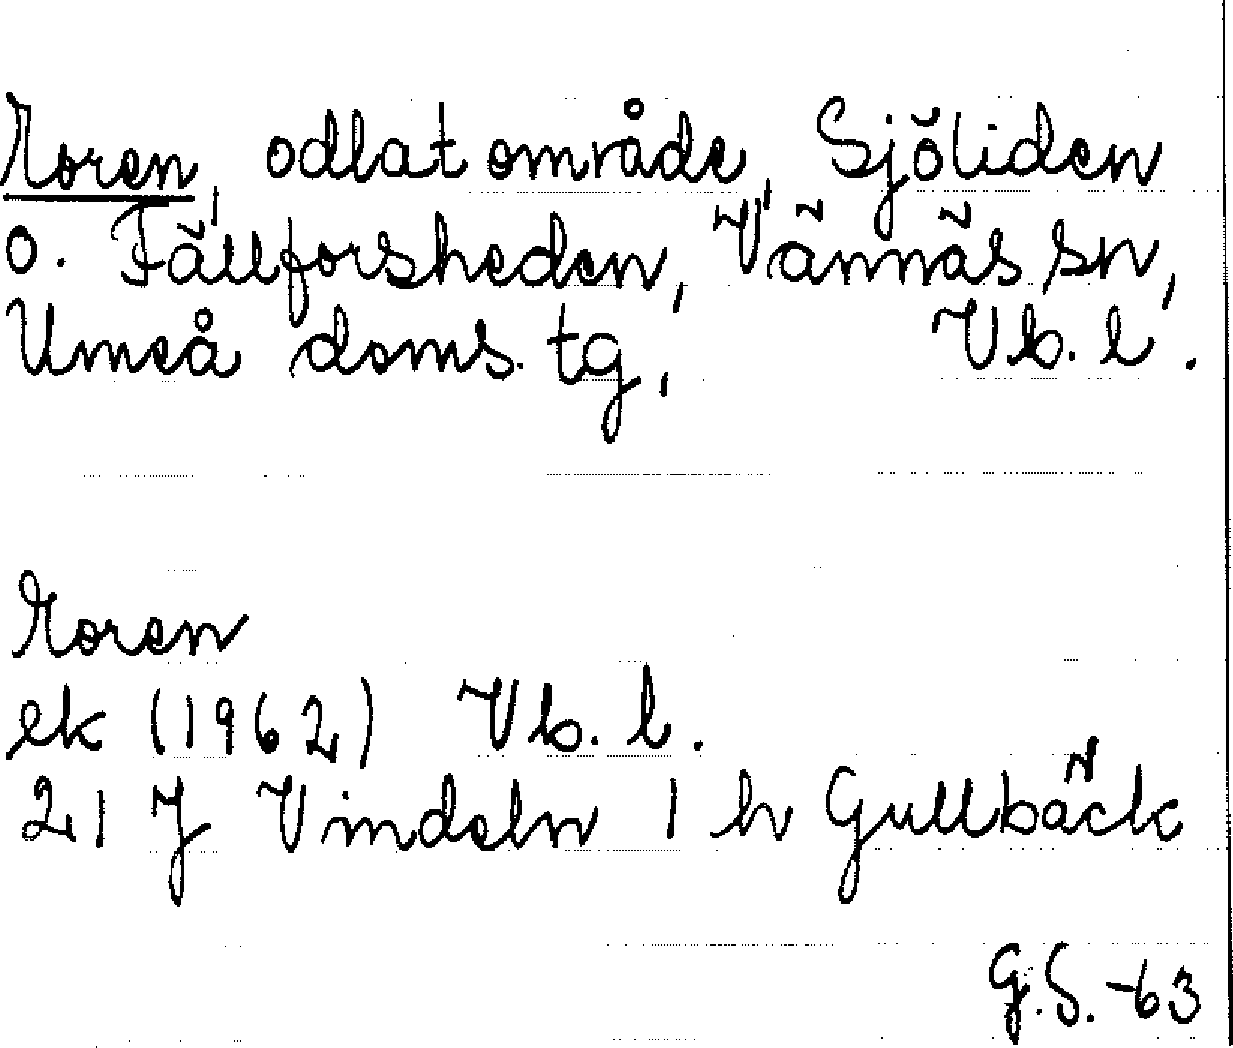 Moren, odlat område, Sjöliden
o. Fällforsheden, Vännäs sn,
Umeå doms. tg, Vb. l.
Moren
ek (1962) Vb. l.
21 J Vindeln 1 h Gullbäck
G.S.-63